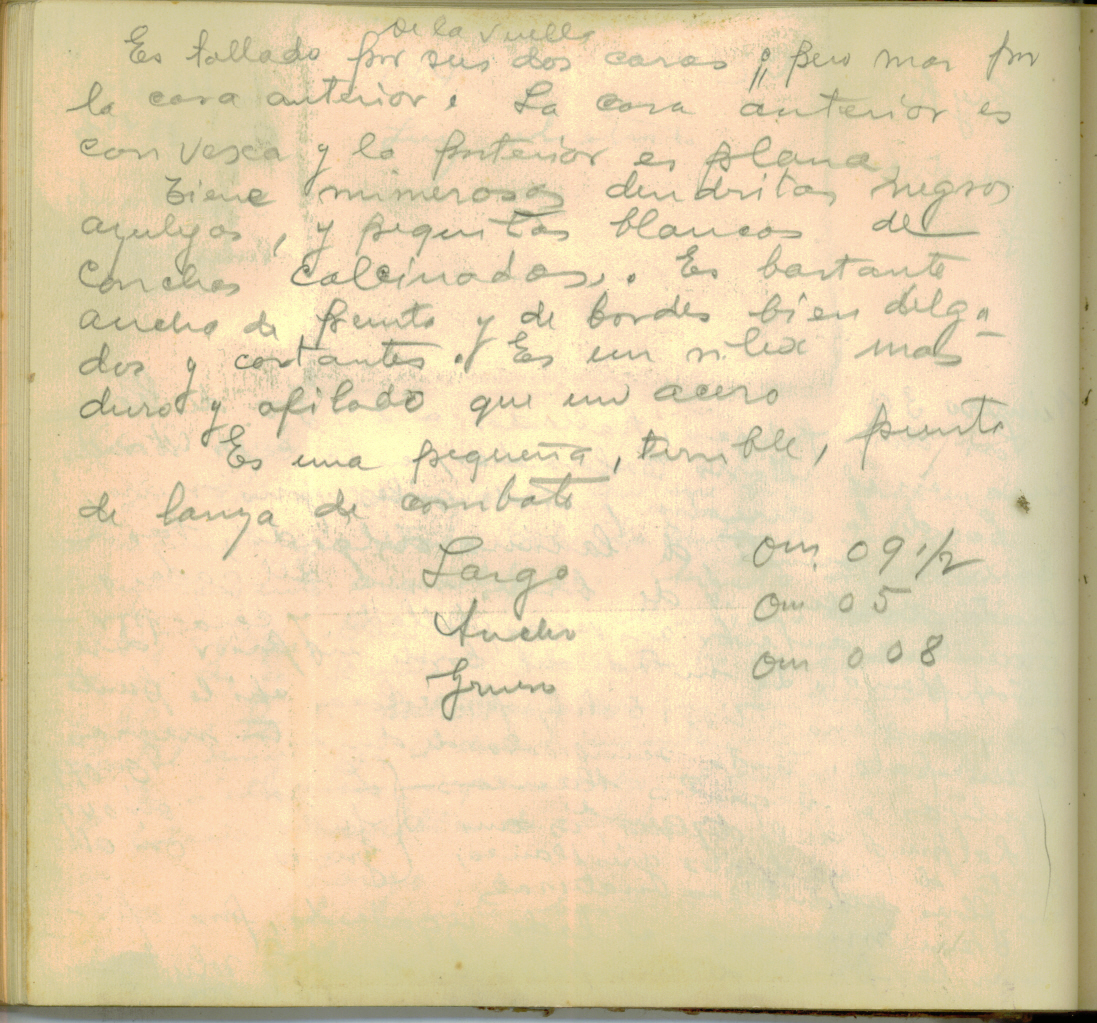 De la vuelta
Es tallado por sus dos caras; pero mas por
la cara anterior. La cara anterior es
convexa y la posterior es plana
Tiene numerosas dendritas negros
azulejos, y pequitas blancas de
conchas calcinadas. Es bastante
ancha de punta y de bordes bien delga-
dos y cortantes. Es un silex mas
duro y afilado que un acero
Es una pequeña, terrible, punta
de lanza de combate
Largo 0m 09 1/2
Ancho 0m 05
Grueso 0m 008